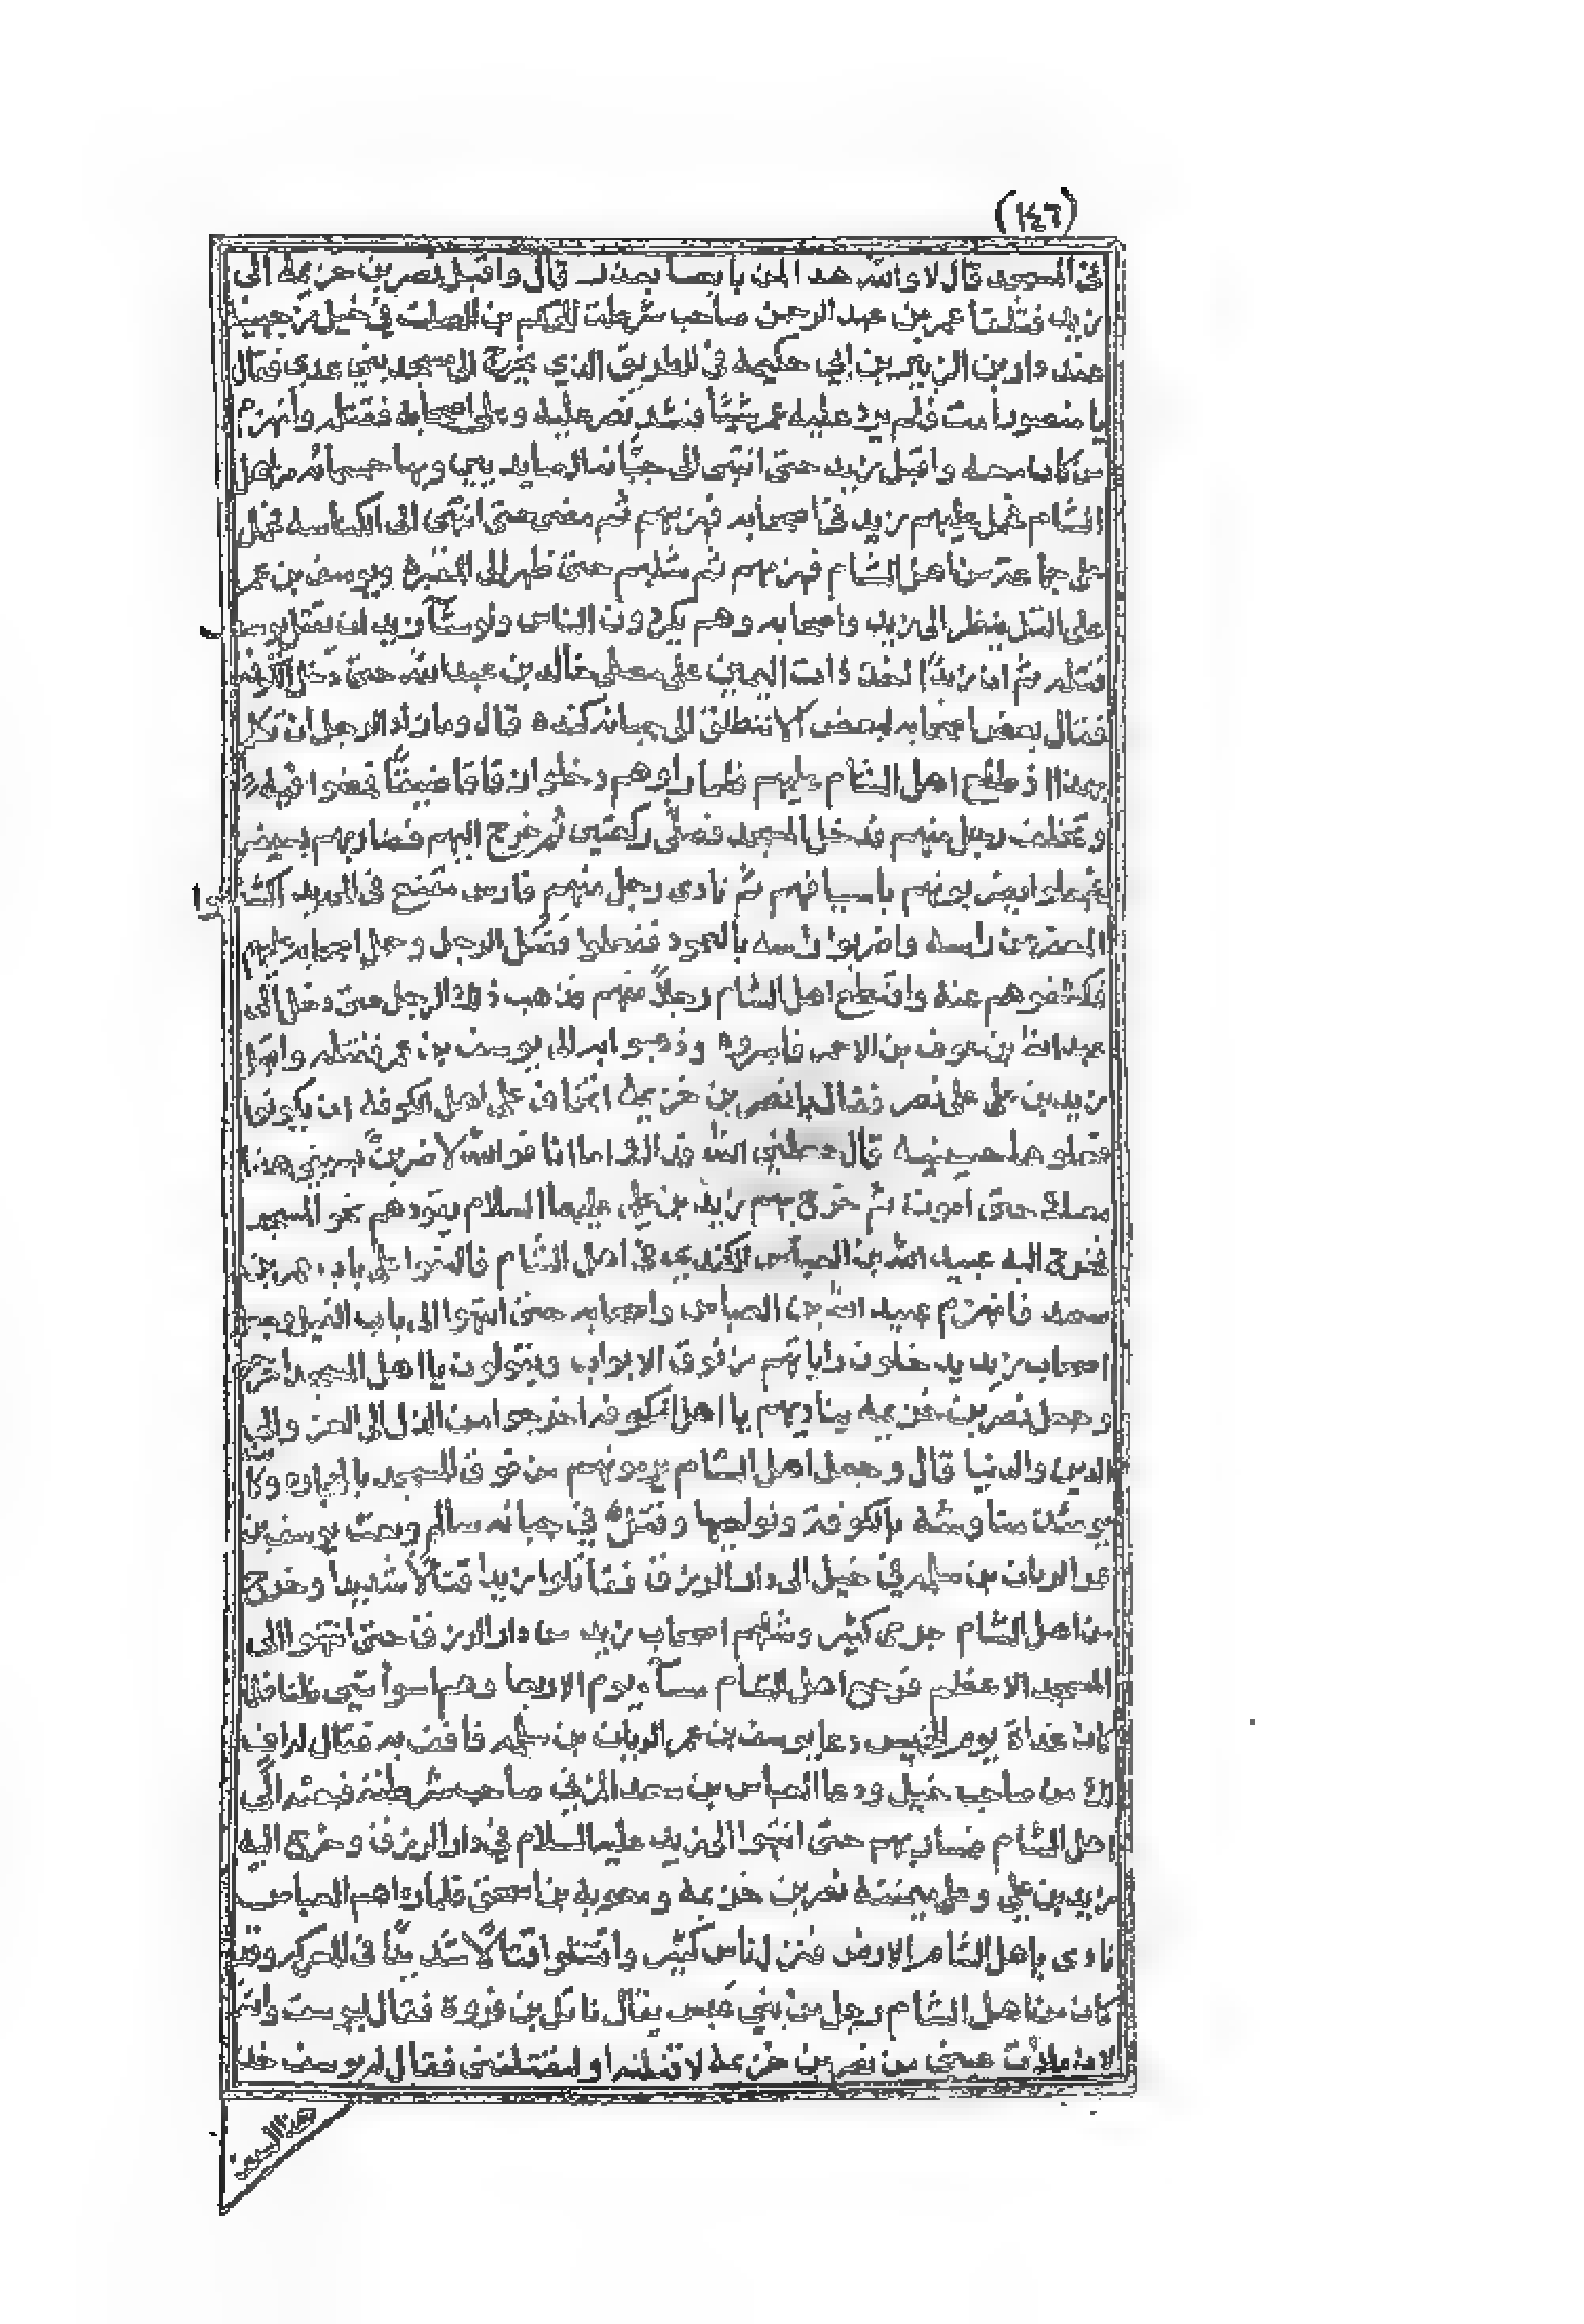 (١٤٦)
في المسجد قال لا والله هذا لمن بايعنا بعذر قال واقبل نصر بن خزيمة الى
زيد فتلقا عمر بن عبد الرحمن صاحب شرطة الحكم بن الصلت في خيل من جهينة
عند دار بن الزبير بن ابي حكيمة في الطريق الذي يخرج الى مسجد بني عدي فقال
يا منصور امت فلم يرد عليه عمر شيئا فشد نصر عليه وعلى اصحابه فقتله وانهزم
من كان معه واقبل زيد حتى انتهى الى جبانة الصايديين وبها خمسمائة من اهل
الشام فحمل عليهم زيد في اصحابه فهزمهم ثم مضى حتى انتهى الى الكناسة فحمل
على جماعة من اهل الشام فهزمهم ثم شلهم حتى ظهر الى المقبرة ويوسف بن عمر
على التل ينظر الى زيد واصحابه وهم يكردون الناس ولو شآ زيد ان يقتل يوسف
قتله ثم ان زيدا اخذ ذات اليمين على مصلى خالد بن عبد الله حتى دخل الكوفة
فقال بعض اصحابه لبعض الا ننطلق الى جبانة كندة قال وما زاد الرجل ان تكلم
بهذا اذ طلع اهل الشام عليهم فلما راوهم دخلوا زقاقا ضيقا فمضوا فيه
وتخلف رجل منهم فدخل المسجد فصلى ركعتين ثم خرج اليهم فضاربهم بسيفه
فجعلوا يضربونه باسيافهم ثم نادى رجل منهم فارس مقنع في الحديد اكشفوا
المغفر عن راسه واضربوا راسه بالعمود ففعلوا فقتل الرجل وحمل اصحابه عليهم
فكشفوهم عنه واقتطع اهل الشام رجلا منهم فذهب ذلك الرجل حتى دخل الى
عبد الله بن عوف بن الاحمر فاسروه وذهبوا به الى يوسف بن عمر فقتله واقبل
زيد بن علي على نصر فقال يا نصر بن خزيمة اتخاف على اهل الكوفة ان يكونوا
فعلوها حسينية قال جعلني الله فداك اما انا فوالله لاضربن بسيفي هذا
معك حتى اموت ثم خرج بهم زيد بن علي عليهما السلام يقودهم نحو المسجد
فخرج اليه عبيد الله بن العباس الكندي في اهل الشام فالتقوا على باب عمر بن
سعد فانهزم عبيد الله بن العباس واصحابه حتى انتهوا الى باب الفيل وجعل
اصحاب زيد يدخلون راياتهم من فوق الابواب ويقولون يا اهل المسجد اخرجوا
وجعل نصر بن خزيمة يناديهم يا اهل الكوفة اخرجوا من الذل الى العز والى
الدين والدنيا قال وجعل اهل الشام يرمونهم من فوق المسجد بالحجارة وكانت
يومئذ مناوشة بالكوفة ونواحيها وقيل في جبانة سالم وبعث يوسف بن
عمر الريان بن سلمه في خيل الى دار الرزق فقاتلوا زيدا قتالا شديدا وخرج
من اهل الشام جرحى كثير وشلهم اصحاب زيد من دار الرزق حتى انتهوا الى
المسجد الاعظم فرجع اهل الشام مسآء يوم الاربعا وهم اسوأ شي ظنا فلما
كان غداة يوم الخميس دعا يوسف بن عمر الريان بن سلمه فافف به فقال له اف
لك من صاحب خيل ودعا العباس بن سعد المزني صاحب شرطته فبعثه الى
اهل الشام فسار بهم حتى انتهوا الى زيد عليه السلام في دار الرزق وخرج اليه
زيد بن علي وعلى ميمنته نصر بن خزيمة ومعوية بن اسحق فلما رآهم العباس
نادى يا اهل الشام الارض فنزل ناس كثير واقتتلوا قتالا شديدا في المعركة وقد
كان من اهل الشام رجل من بني عبس يقال له نائل بن فروة فقال ليوسف والله
لان ملأت عيني من نصر بن خزيمة لاقتلنه او ليقتلني فقال له يوسف خذ
هذا السيف